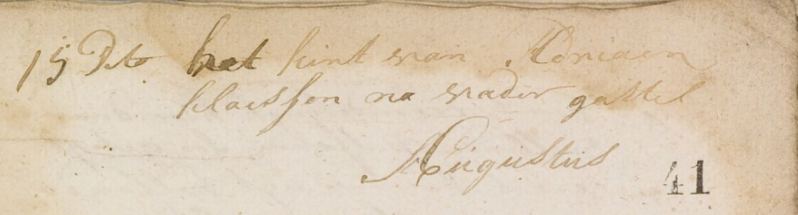 15 Dito het kint van Adriaen
klaessen na vader gastel
Augustus
41